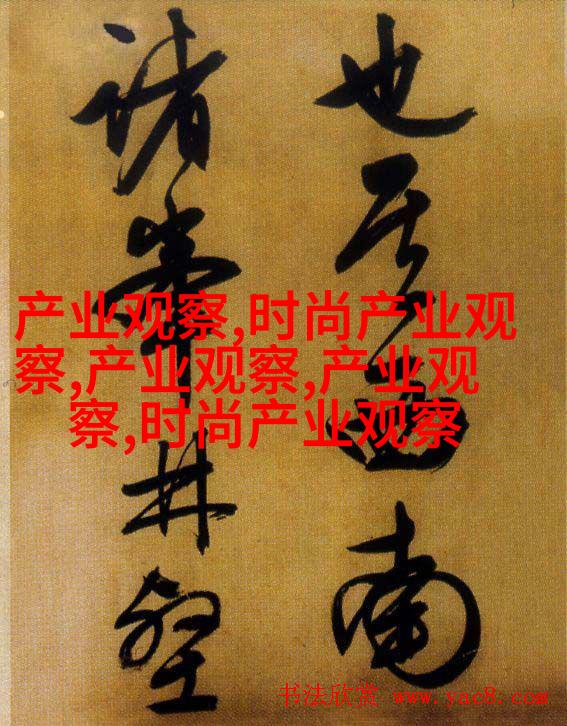 也其西南
諸峯林壑
产业观察,时尚产业观
察,产业观察,产业观
察,时尚产业观察
书法欣赏 www.yac8.com